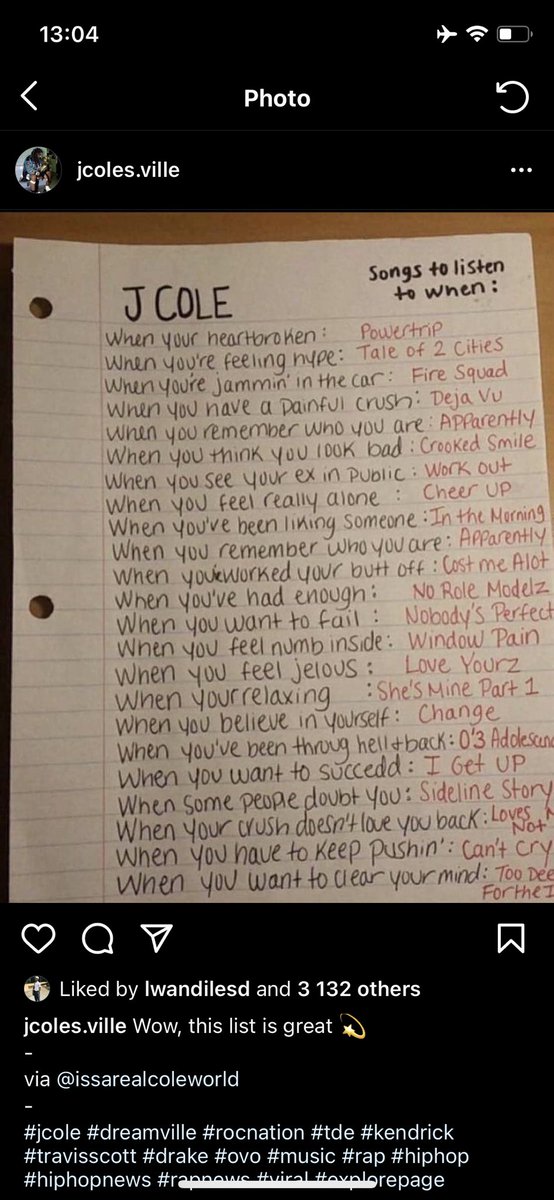 13:04
Photo
jcoles.ville
Songs to listen
to when:
J COLE
When your heartbroken: Powertrip
When you're feeling hype: Tale of 2 Cities
When you're jammin' in the car: Fire Squad
When you have a painful crush: Deja Vu
When you remember who you are: Apparently
When you think you look bad: Crooked Smile
When you see your ex in public: Work out
When you feel really alone : Cheer UP
When you've been liking someone: In the Morning
When you remember who you are: Apparently
When you worked your butt off: Cost me Alot
When you've had enough: No Role Modelz
When you want to fail : Nobody's Perfect
When you feel numb inside: Window Pain
When you feel jelous : Love Yourz
When your relaxing : She's Mine Part 1
When you believe in yourself: Change
When you've been throug hell + back: 0'3 Adolescenc
When you want to succedd : I Get UP
When some people doubt you: Sideline Story
When your crush doesn't love you back: Loves
Not
When you have to keep pushin': Can't Cry
When you want to clear your mind: Too Dee
For the I
Liked by lwandilesd and 3 132 others
jcoles.ville Wow, this list is great 💫
-
via @issarealcoleworld
-
#jcole #dreamville #rocnation #tde #kendrick
#travisscott #drake #ovo #music #rap #hiphop
#hiphopnews #rapnews #viral #explorepage